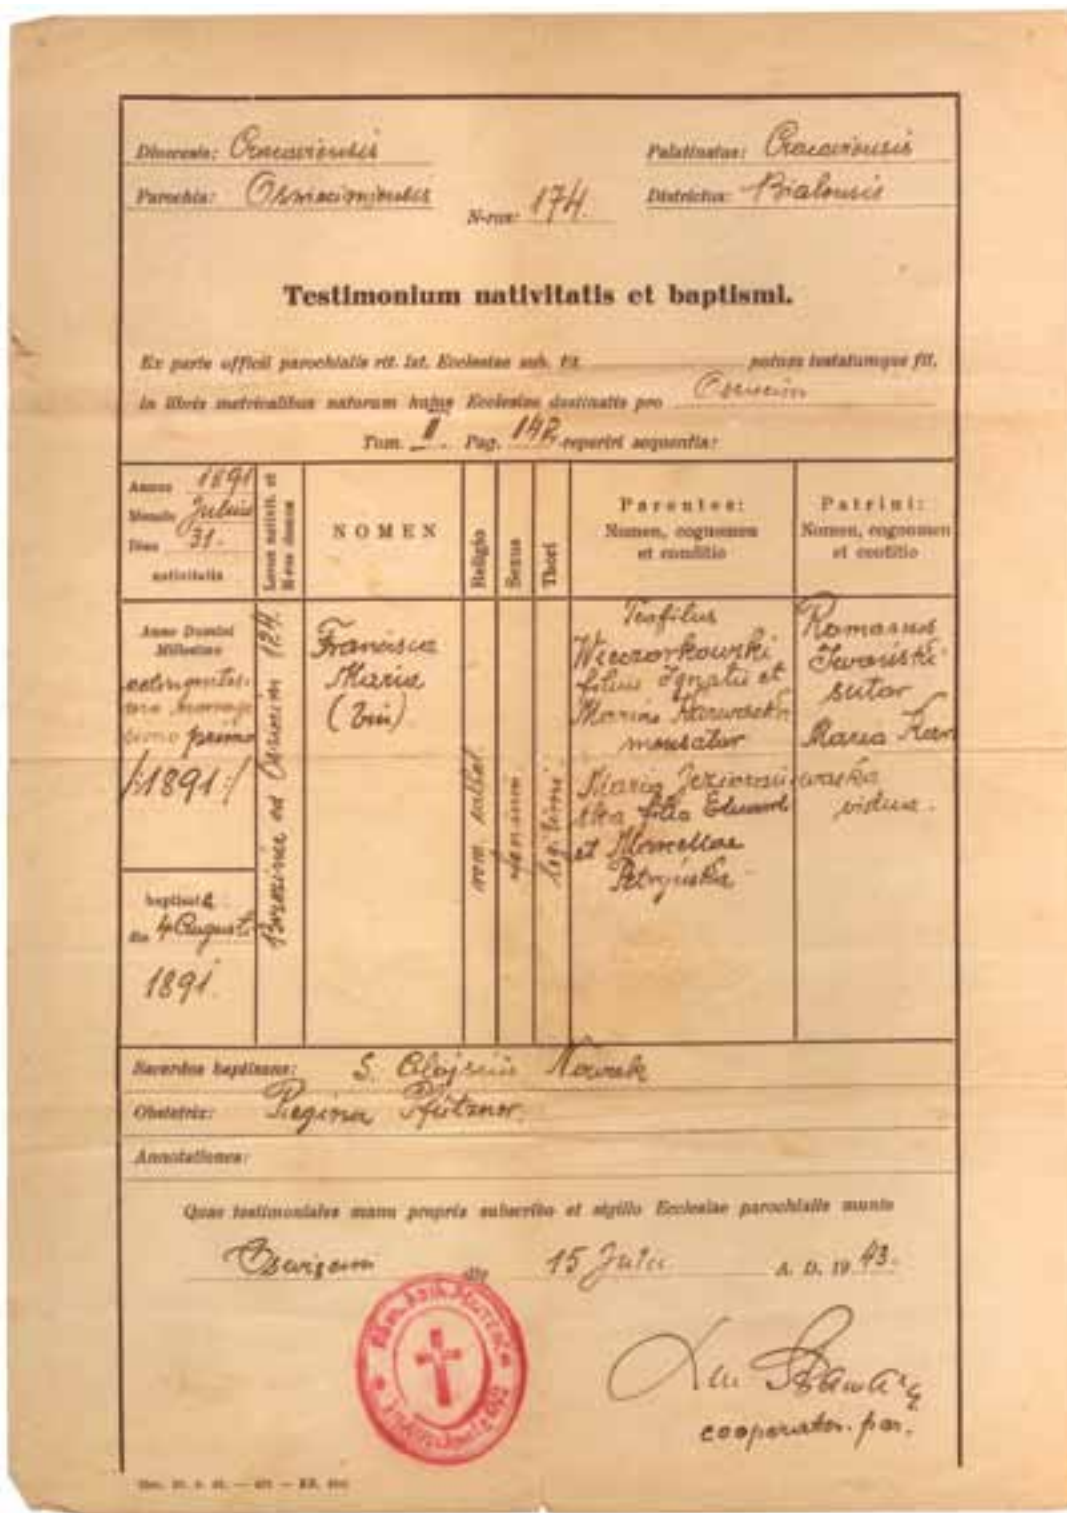 Diocesis: Cracoviensis
Palatinatus: Cracoviensis
Parochia: Osviecimiensis
Districtus: Bialensis
N-rus: 174.
Testimonium nativitatis et baptismi.
Ex parte officii parochialis rit. lat. Ecclesiae sub. tit. notum testatumque fit,
in libris metricalibus natorum hujus Ecclesiae destinatis pro
Tom. II. Pag. 142 reperiri sequentia:
Annus 1891
Mensis Julius
Dies 31.
nativitatis
Locus nativit. et
N-rus domus
NOMEN
Religio
Sexus
Thori
Parentes:
Nomen, cognomen
et conditio
Patrini:
Nomen, cognomen
et conditio
Anno Domini
Millesimo
primo
/:1891:/
baptisata
die 4 Augusti
1891.
Brzezinka ad 124.
Francisca
Maria
(bin)
rom. cathol.
legitimi
Teofilus
Wieczorkowski
filius Ignatii et
Mariae
Maria
filia Eduardi
et Marcellae
Romanus
Iwański
sutor
Maria
vidua.
Sacerdos baptisans: S. Nowak
Obstetrix: Regina Pfützner.
Annotationes:
Quas testimoniales manu propria subscribo et sigillo Ecclesiae parochialis munio
die 15 Julii A. D. 1943.
cooperator. par.